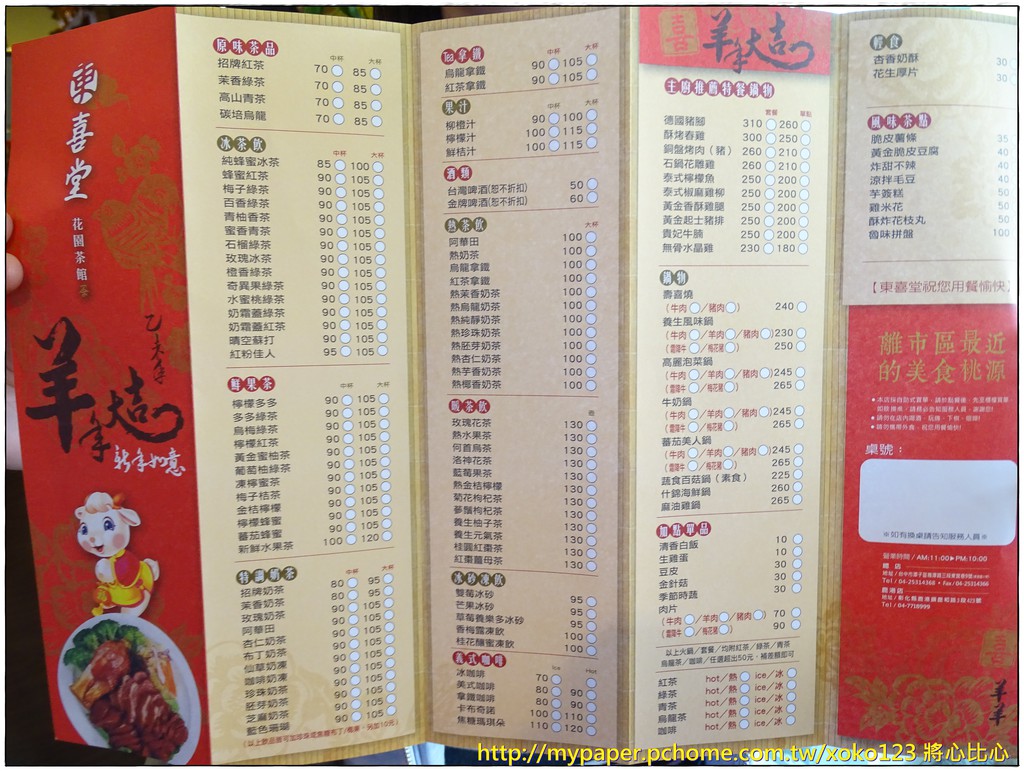 東喜堂
花園茶館
乙未年
羊年大吉
新年如意
原味茶品 中杯 大杯
招牌紅茶 70 85
茉香綠茶 70 85
高山青茶 70 85
碳培烏龍 70 85
冰茶飲 中杯 大杯
純蜂蜜冰茶 85 100
蜂蜜紅茶 90 105
梅子綠茶 90 105
百香綠茶 90 105
青柚香茶 90 105
蜜香青茶 90 105
石榴綠茶 90 105
玫瑰冰茶 90 105
橙香綠茶 90 105
奇異果綠茶 90 105
水蜜桃綠茶 90 105
奶霜蓋綠茶 90 105
奶霜蓋紅茶 90 105
晴空蘇打 90 105
紅粉佳人 95 105
鮮果茶 中杯 大杯
檸檬多多 90 105
多多綠茶 90 105
烏梅綠茶 90 105
檸檬紅茶 90 105
黃金蜜柚茶 90 105
葡萄柚綠茶 90 105
凍檸蜜茶 90 105
梅子桔茶 90 105
金桔檸檬 90 105
檸檬蜂蜜 90 105
蕃茄蜂蜜 90 105
新鮮水果茶 100 120
特調奶茶 中杯 大杯
招牌奶茶 80 95
茉香奶茶 80 95
玫瑰奶茶 90 105
阿華田 90 105
杏仁奶茶 90 105
布丁奶茶 90 105
仙草奶凍 90 105
咖啡奶凍 90 105
珍珠奶茶 90 105
胚芽奶茶 90 105
芝麻奶茶 90 105
藍色珊瑚 90 105
Tea拿鐵 中杯 大杯
烏龍拿鐵 90 105
紅茶拿鐵 90 105
果汁 中杯 大杯
柳橙汁 90 100
檸檬汁 100 115
鮮桔汁 100 115
酒類
台灣啤酒(恕不折扣) 50
金牌啤酒(恕不折扣) 60
熱茶飲 大杯
阿華田 100
熱奶茶 100
烏龍拿鐵 100
紅茶拿鐵 100
熱茉香奶茶 100
熱烏龍奶茶 100
熱純靜奶茶 100
熱珍珠奶茶 100
熱胚芽奶茶 100
熱杏仁奶茶 100
熱芋香奶茶 100
熱椰香奶茶 100
暖茶飲 壺
玫瑰花茶 130
熱水果茶 130
何首烏茶 130
洛神花茶 130
藍莓果茶 130
熱金桔檸檬 130
菊花枸杞茶 130
蔘鬚枸杞茶 130
養生柚子茶 130
養生元氣茶 130
桂圓紅棗茶 130
紅棗薑母茶 130
冰砂凍飲
雙莓冰砂 95
芒果冰砂 95
草莓養樂多冰砂 95
香梅露凍飲 95
桂花釀蜜凍飲 100
義式咖啡 Ice Hot
冰咖啡 70
美式咖啡 80 90
拿鐵咖啡 80 90
卡布奇諾 100 110
焦糖瑪琪朵 110 120
喜
羊年大吉
主廚推薦特餐鍋物
套餐 單點
德國豬腳 310 260
酥烤春雞 300 250
銅盤烤肉(豬) 260 210
石鍋花雕雞 260 210
泰式檸檬魚 250 200
泰式椒麻雞柳 250 200
黃金香酥雞腿 250 200
黃金起士豬排 250 200
貴妃牛腩 250 200
無骨水晶雞 230 180
鍋物
壽喜燒
(牛肉/豬肉) 240
養生風味鍋
(牛肉/羊肉/豬肉) 230
(霜降牛/梅花豬) 250
高麗泡菜鍋
(牛肉/羊肉/豬肉) 245
(霜降牛/梅花豬) 265
牛奶鍋
(牛肉/羊肉/豬肉) 245
(霜降牛/梅花豬) 265
蕃茄美人鍋
(牛肉/羊肉/豬肉) 245
(霜降牛/梅花豬) 265
蔬食百菇鍋(素食) 225
什錦海鮮鍋 260
麻油雞鍋 265
加點單品
清香白飯 10
生雞蛋 10
豆皮 30
金針菇 30
季節時蔬 30
肉片
(牛肉/羊肉/豬肉) 70
(霜降牛/梅花豬) 90
以上火鍋/套餐/均附紅茶/綠茶/青茶
烏龍茶/咖啡/任選超出50元,補差額即可
紅茶 hot/熱 ice/冰
綠茶 hot/熱 ice/冰
青茶 hot/熱 ice/冰
烏龍茶 hot/熱 ice/冰
咖啡 hot/熱 ice/冰
輕食
杏香奶酥 30
花生厚片 30
風味茶點
脆皮薯條 35
黃金脆皮豆腐 40
炸甜不辣 40
涼拌毛豆 40
芋簽糕 50
雞米花 50
酥炸花枝丸 50
魯味拼盤 100
【東喜堂祝您用餐愉快】
離市區最近
的美食桃源
桌號:
※如有換桌請告知服務人員※
營業時間/AM:11:00▶PM:10:00
Tel/04-25314368 • Fax/04-25314366
鹿港店
Tel/04-7718999
喜
羊羊
http://mypaper.pchome.com.tw/xoko123 將心比心